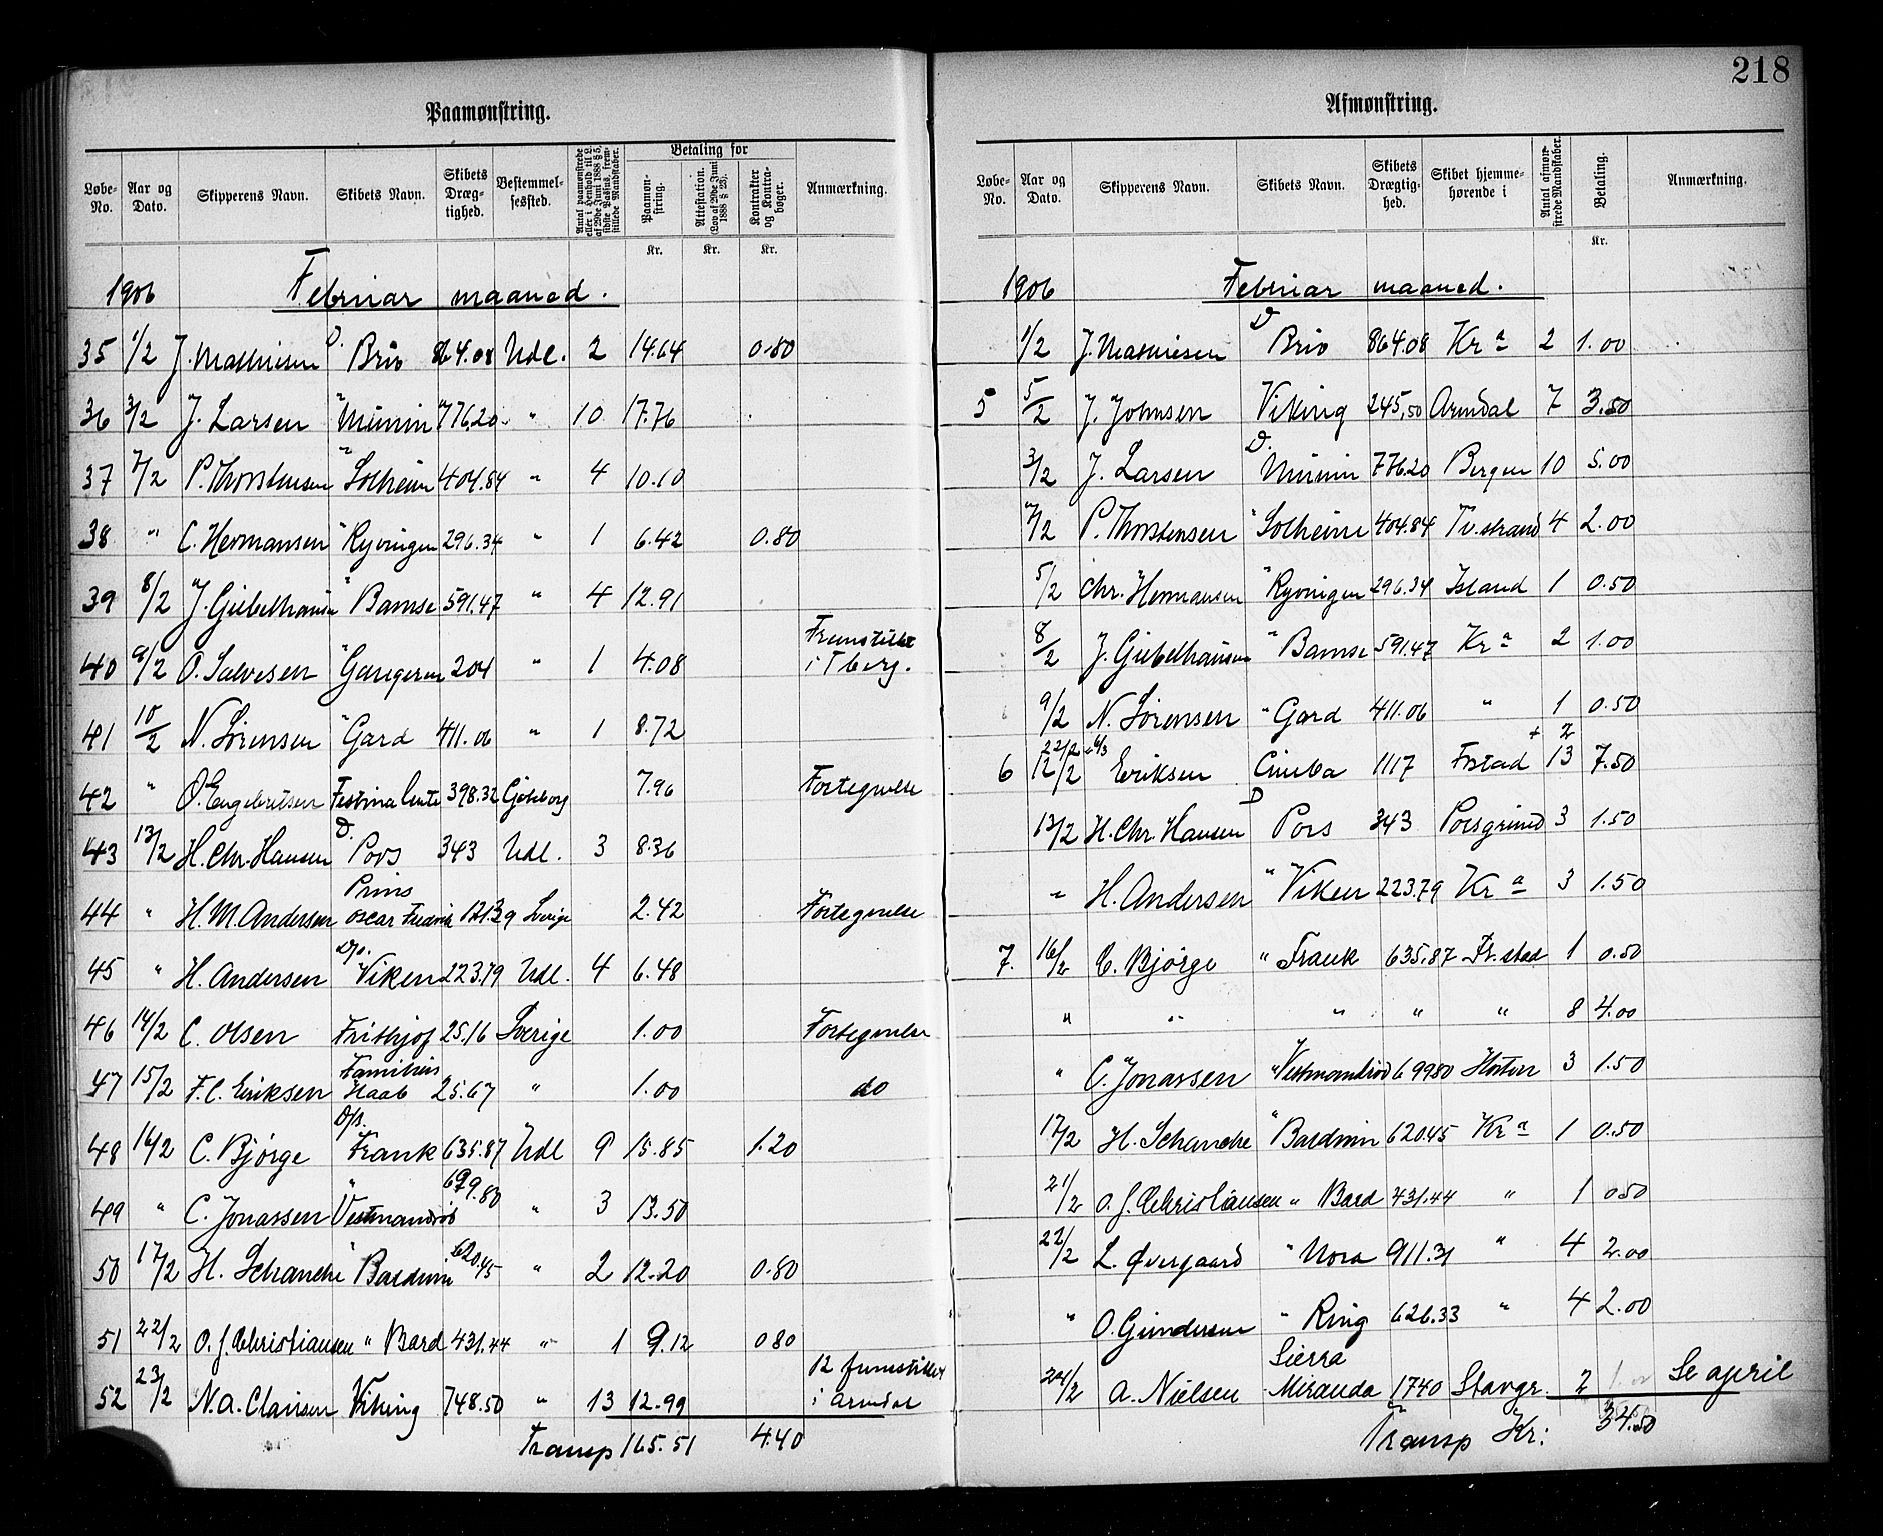 218
Paamønstring.
Løbe-No. Aar og Dato. Skipperens Navn. Skibets Navn. Skibets Dræg-tighed. Bestemmel-sessted. Antal paamønstrede eller i Henhold til L. af 29de Juni 1888 § 5, sidste Passus, frem-stillede Mandskaber. Betaling for Paamøn-string. Attestation. (Lov af 29de Juni 1888 § 23). Kontrakter og Kontra-bøger. Anmærkning.
Kr. Kr. Kr.
1906 Februar maaned.
35 1/2 J. Mathiesen D. Brio 864.08 Udl. 2 14.64 0.80
36 3/2 J. Larsen " Munin 776.20 " 10 17.76
37 7/2 P. Thorstensen " Solheim 404.84 " 4 10.10
38 " C. Hermansen " Ryvingen 296.34 " 1 6.42 0.80
39 8/2 J. Giebelhausen " Bamse 591.47 " 4 12.91
40 9/2 O. Salvesen " Gangeren 204 " 1 4.08 Fremstillet i Tberg.
41 10/2 N. Sørensen " Gard 411.06 " 1 8.72
42 " O. Engebretsen Festina lente 398.32 Gøteborg 7.96 Fortegnelse
43 13/2 H. Chr. Hansen D. Pors 343 Udl. 3 8.36
44 " H. M. Andersen Prins Oscar Fredrik 121.39 Sverige 2.42 Fortegnelse
45 " H. Andersen D/s. Viken 223.79 Udl. 4 6.48
46 14/2 C. Olsen Frithjof 25.16 Sverige 1.00 Fortegnelse
47 15/2 F. C. Eriksen Familiens Haab 25.67 " 1.00 do
48 16/2 C. Bjørge D/s. Frank 635.87 Udl 9 15.85 1.20
49 " C. Jonassen " Vestmanrød 699.80 " 3 13.50
50 17/2 H. Schanche " Baldwin 620.45 " 2 12.20 0.80
51 22/2 O. J. Christiansen " Bard 431.44 " 1 9.12 0.80
52 23/2 N. A. Clausen Viking 748.50 " 13 12.99 12 fremstillet i Arendal
Transp 165.51 4.40
Afmønstring.
Løbe-No. Aar og Dato. Skipperens Navn. Skibets Navn. Skibets Drægtig-hed. Skibet hjemme-hørende i Antal afmøn-strede Mandskaber. Betaling. Anmærkning.
Kr.
1906 Februar maaned.
1/2 J. Mathiesen D Brio 864.08 Kra 2 1.00
5 5/2 J. Johnsen Viking 245,50 Arendal 7 3.50
3/2 J. Larsen D. Munin 776.20 Bergen 10 5.00
7/2 P. Thorstensen " Solheim 404.84 Tv.strand 4 2.00
5/2 Chr. Hermansen " Ryvingen 296.34 Island 1 0.50
8/2 J. Giebelhausen " Bamse 591.47 Kra 2 1.00
9/2 N. Sørensen " Gard 411.06 " 1 0.50
22/2 6/3 + 2
6 12/2 Eriksen Cimba 1117 Frstad 13 7.50
13/2 H. Chr. Hansen D Pors 343 Porsgrund 3 1.50
" H. Andersen " Viken 223.79 Kra 3 1.50
7. 16/2 C. Bjørge " Frank 635.87 Fr.stad 1 0.50
" " " " " 8 4.00
" C. Jonassen " Vestmanrød 699.80 Horten 3 1.50
17/2 H. Schanche " Baldwin 620.45 Kra 1 0.50
21/2 O. J. Christiansen " Bard 431.44 " 1 0.50
22/2 L. Øvergaard " Nora 911.31 " 4 2.00
" O. Gundersen " Ring 626.33 " 4 2.00
24/2 A. Nielsen Sierra Miranda 1740 Stavgr. 2 Se april
Transp Kr: 34.50